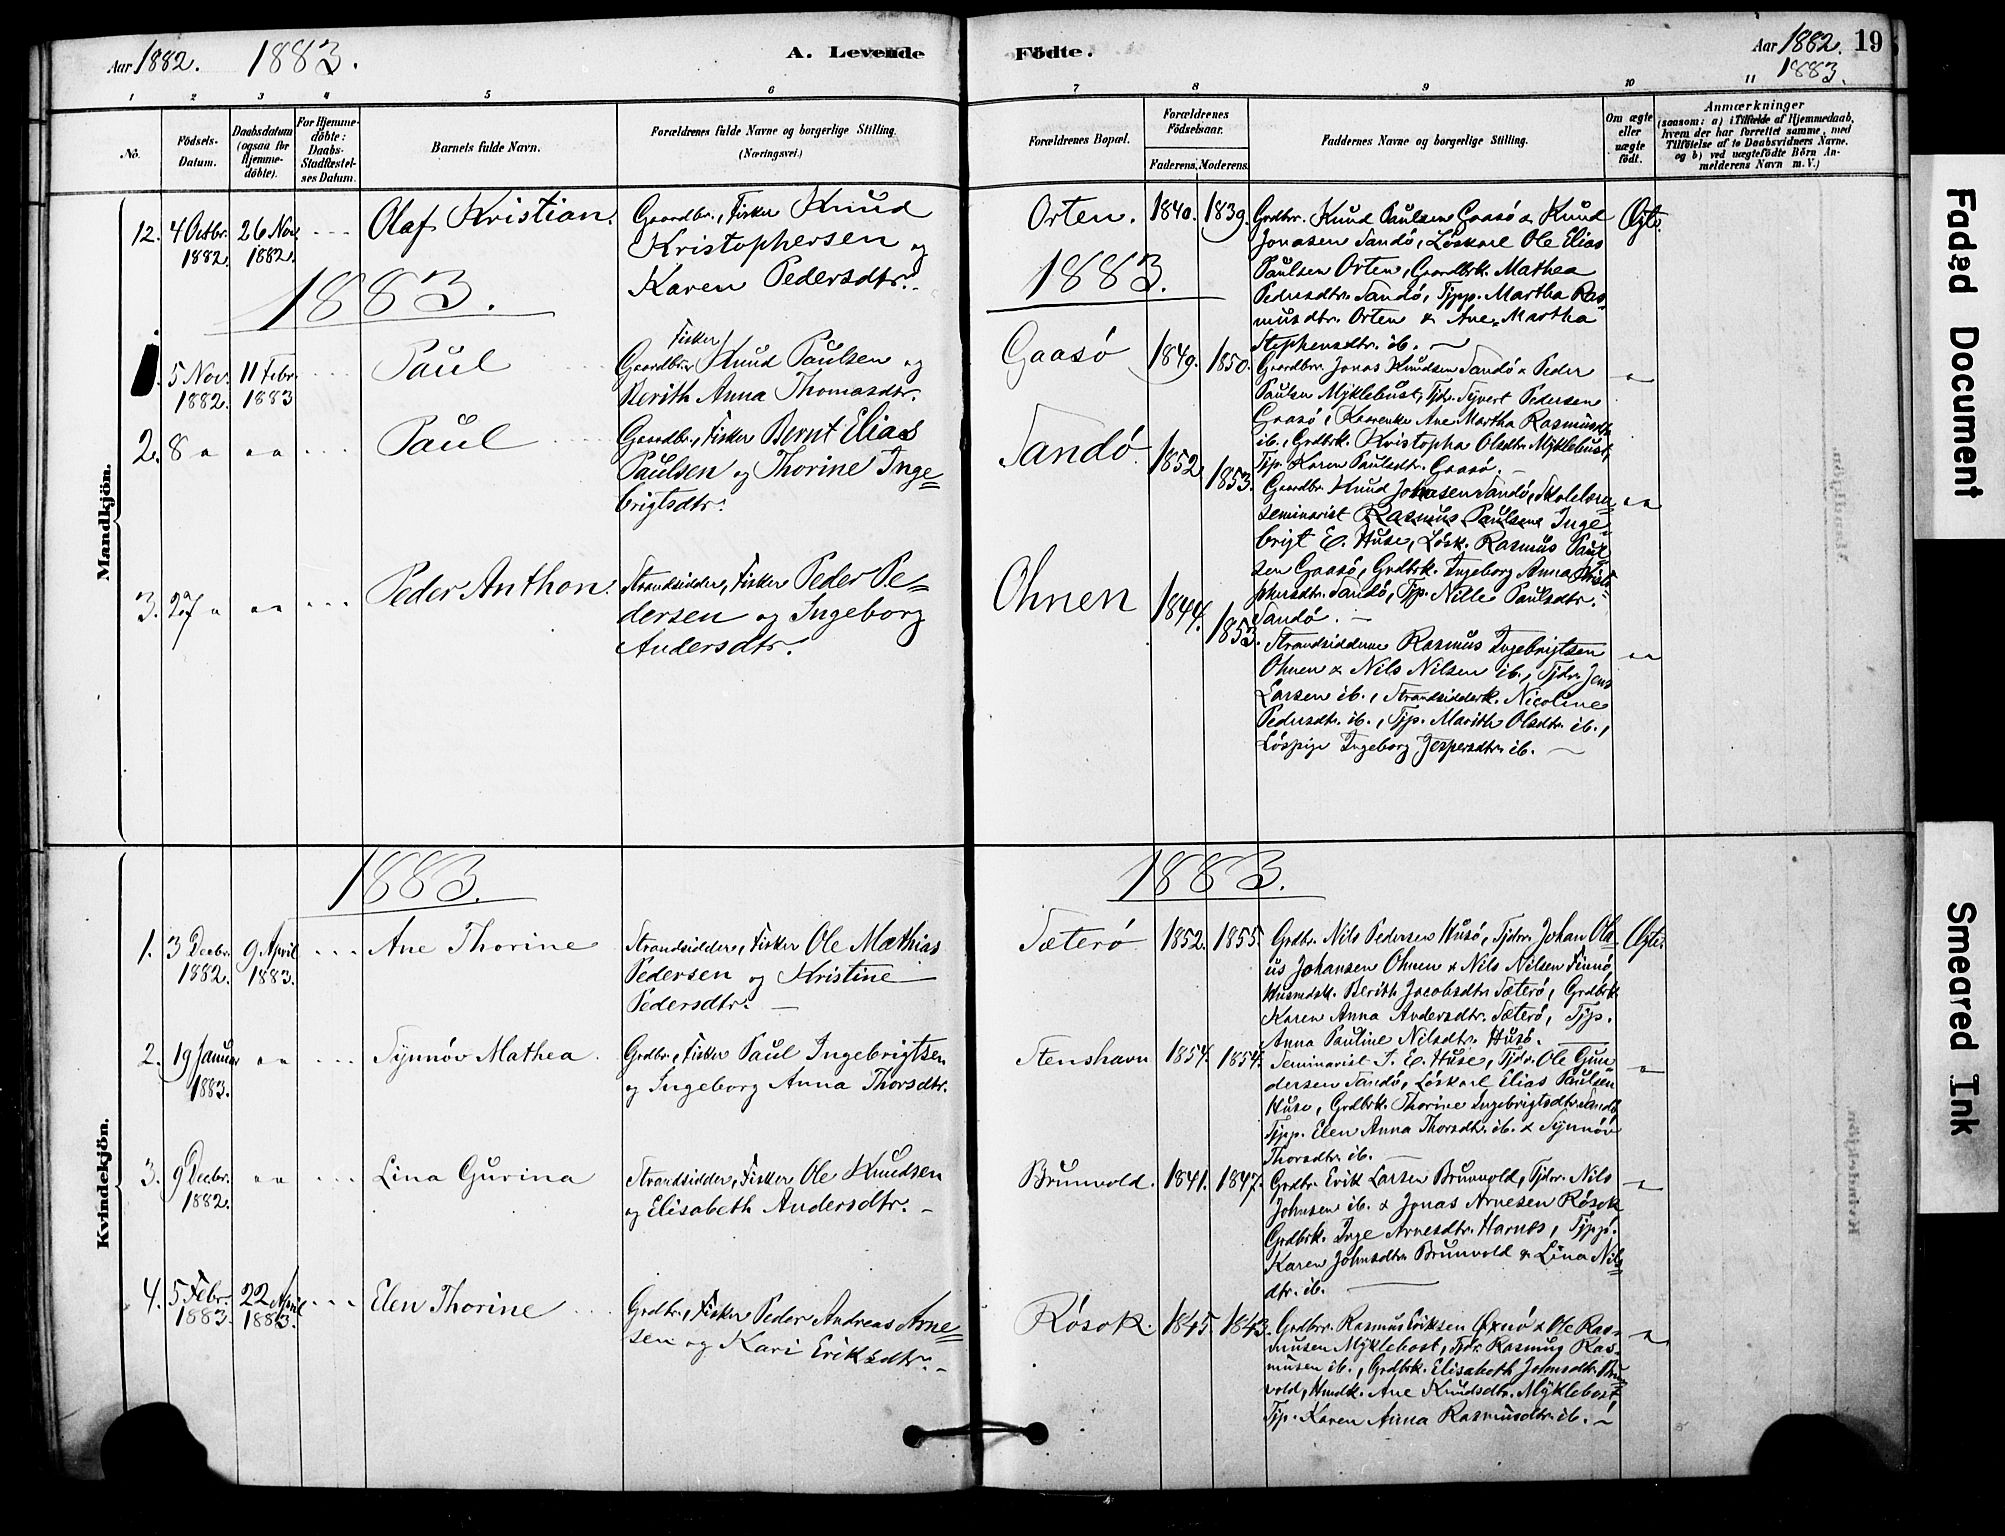 Aar 1882. 1883. A. Levende
Födte. Aar 1882. 19
1883.
1 2 3 4 5 6 7 8 9 10 11
No.
Födsels-
Datum.
Daabsdatum
(ogsaa for
Hjemme-
döbte).
For Hjemme-
döbte:
Daabs-
Stadfæstel-
ses Datum.
Barnets fulde Navn.
Forældrenes fulde Navne og borgerlige Stilling.
(Næringsvei.)
Forældrenes Bopæl.
Forældrenes
Födselsaar.
Faderens. Moderens.
Faddernes Navne og borgerlige Stilling.
Om ægte
eller
uægte
födt.
Anmærkninger
(saasom: a) i Tilfælde af Hjemmedaab,
hvem der har forrettet samme, med
Tilföielse af to Daabsvidners Navne.
og b) ved uægtefödte Börn An-
melderens Navn m. V.)
Mandkjön.
12. 4 Octbr. 1882. 26 Nov. 1882. Olaf Kristian. Gaardbr., Fisker Knud
Kristophersen og
Karen Pedersdtr.
Orten. 1840. 1839. Grdbr. Knud Paulsen Gaasö & Knud
Jonasen Sandö, Löskarl Ole Elias
Paulsen Orten, Gaardbrk. Mathea
Pedersdtr. Sandö, Tjpp. Martha Ras-
musdtr. Orten & Ane Martha
Stephensdtr. ib. —
Ægte.
1883.
1883.
5 Nov. 1882. 11 Febr. 1883 Paul
Fisker
Gaardbr. Knud Paulsen og
Berith Anna Thomasdtr.
Gaasö 1849. 1850. Gaardbrr. Jonas Knudsen Sandö & Peder
Paulsen Myklebust, Tjdr. Syvert Pedersen
Gaasö, Kaarenke Ane Martha Rasmusdtr.
ib., Grdbrk. Kristopha Olsdtr. Myklebust,
Tjp. Karen Paulsdtr. Gaasö. —
2. 8 " " " Paul Gaardbr., Fisker Bernt Elias
Paulsen og Thorine Inge-
brigtsdtr.
Sandö. 1852. 1853. Gaardbr. Knud Johnsen Sandö, Skolelærer
Seminarist Rasmus Paulsen, Inge-
brigt E. Huse, Lösk. Rasmus Paul-
sen Gaasö, Grdbrk. Ingeborg Anna Kristo-
phersdtr. Sandö, Tjp. Nille Paulsdtr.
Sandö. —
3. 27 " " " Peder Anthon. Strandsidder, Fisker Peder Pe-
dersen og Ingeborg
Andersdtr.
Ohnen 1844. 1853. Strandsidderne Rasmus Ingebrigtsen
Ohnen & Nils Nilsen ib., Tjdr. Jens
Larsen ib., Strandsidderk. Nicoline
Pedersdtr. ib., Tjp. Marith Olsdtr. ib.,
Löspige Ingeborg Jespersdtr. ib. —
Kvindekjön.
1883.
1883.
1. 3 Decbr. 1882. 9 April 1883. Ane Thorine Strandsidder, Fisker Ole Mathias
Pedersen og Kristine
Pedersdtr. —
Sæterö 1852. 1855. Grdbr. Nils Pedersen Husö, Tjdr. Johan Ola-
us Johansen Ohnen & Nils Nilsen Finnö
Husmdsk. Berith Jacobsdtr. Sæterö, Grdbrk.
Karen Anna Andersdtr. Sæterö, Tjp.
Anna Pauline Nilsdtr. Husö.
Ægte.
2. 19 Januar 1883. " " Synnöv Mathea. Grdbr., Fisker Paul Ingebrigtsen
og Ingeborg Anna Thorsdtr.
Stenshavn 1854. 1854. Seminarist I. E. Huse, Tjdr. Ole Gun-
dersen Sandö, Löskarl Elias Paulsen
Huse, Grdbrk. Thorine Ingebrigtsdtr. Sandö
Tjpp. Elen Anna Thorsdtr. ib. & Synnöv
Thorsdtr. ib.
3. 9 Decbr. 1882. " " Lina Gurina Strandsidder, Fisker Ole Knudsen
og Elisabeth Andersdtr. —
Brunvold. 1841. 1847. Grdbr. Erik Larsen Brunvold, Tjdrr. Nils
Johnsen ib. & Jonas Arnesen Rösok
Grdbrk. Inge Arnesdtr. Harnes, Tjpp.
Karen Johnsdtr. Brunvold & Lina Nils-
dtr. ib.
4. 5 Febr. 1883. 22 April 1883. Elen Thorine Grdbr., Fisker Peder Andreas Arne-
sen og Kari Eriksdtr. —
Rösok. 1845. 1843. Grdbrr. Rasmus Eriksen Oxnö & Ole Ras-
musen Myklebost, Tjdr. Rasmus Ras-
musen ib., Grdbrk. Elisabeth Johnsdtr. Brun-
vold, Husmdk. Ane Knudsdtr. Myklebost
Tjp. Karen Anna Rasmusdtr. ib. —
Faded Document
Smeared Ink